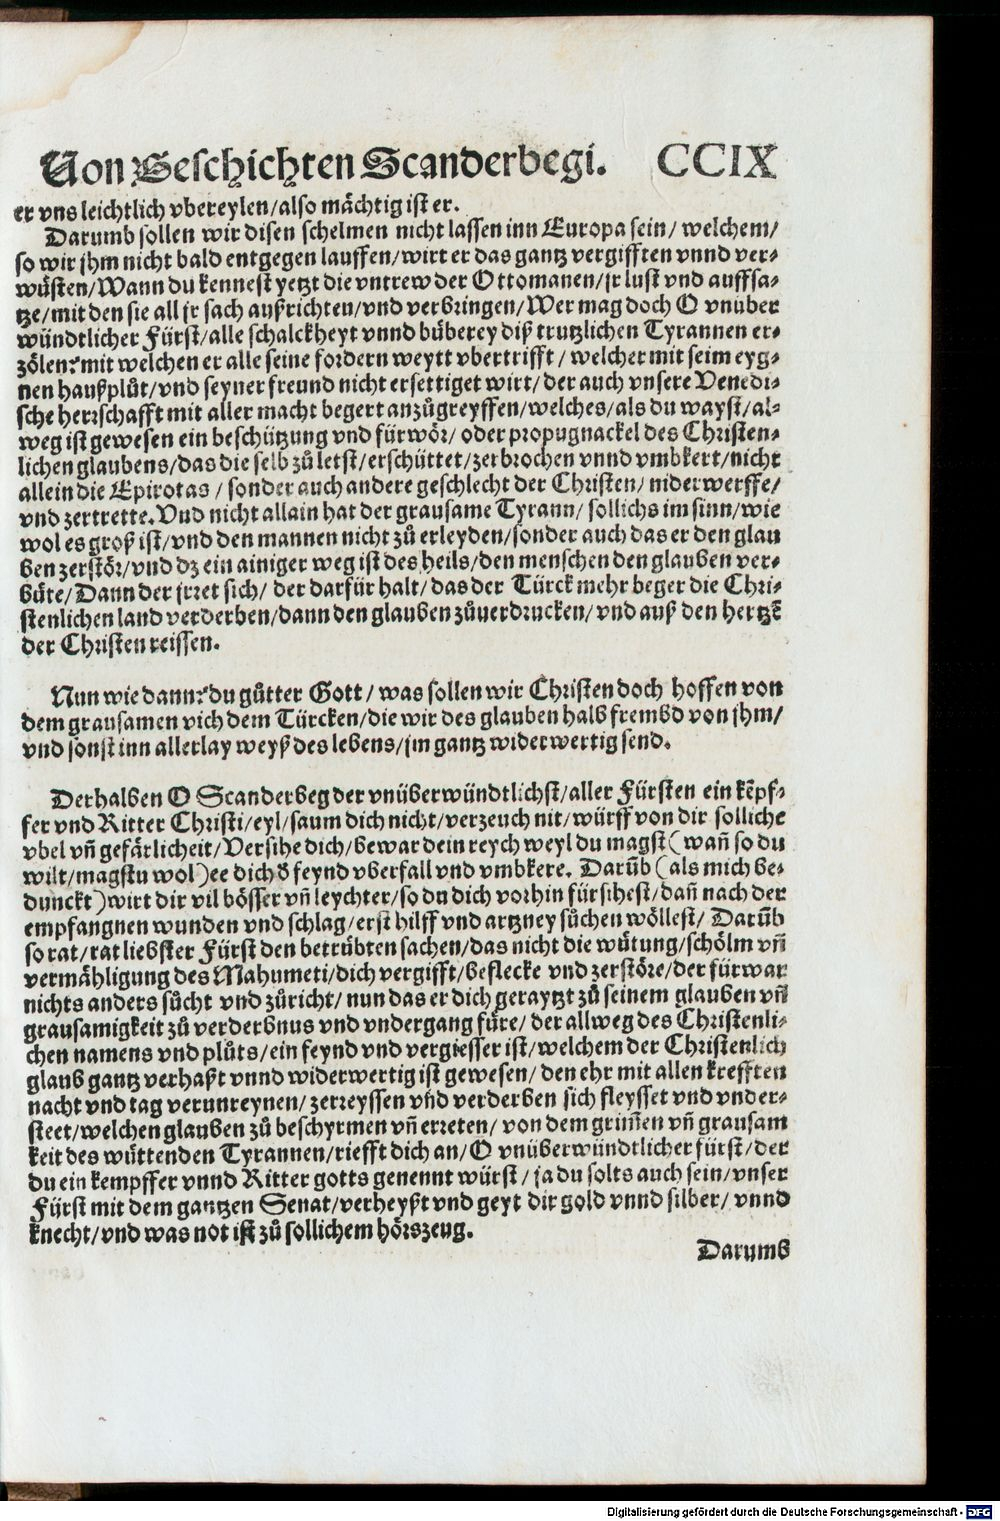 Von Geschichten Scanderbegi. CCIX
er vns leichtlich vbereylen/also mächtig ist er.
Darumb sollen wir disen schelmen nicht lassen inn Europa sein/ welchem/
so wir jhm nicht bald entgegen lauffen/wirt er das gantz vergifften vnnd ver-
wüsten/Wann du kennest yetzt die vntrew der Ottomanen/jr lust vnd auffsa-
tze/mit den sie all jr sach außrichten/vnd verbringen/Wer mag doch O vnüber
wündtlicher Fürst/alle schalckheyt vnnd büberey diß trutzlichen Tyrannen er-
zölen? mit welchen er alle seine fordern weytt vbertrifft/ welcher mit seim eyg-
nen haußplůt/vnd seyner freund nicht ersettiget wirt/der auch vnsere Venedi-
sche herrschafft mit aller macht begert anzůgreyffen/welches/als du wayst/al-
weg ist gewesen ein beschützung vnd fürwör/ oder propugnackel des Christen-
lichen glaubens/das die selb zů letst/erschüttet/zerbrochen vnnd vmbkert/nicht
allein die Epirotas/ sonder auch andere geschlecht der Christen/ niderwerffe/
vnd zertrette. Vnd nicht allain hat der grausame Tyrann/ sollichs im sinn/wie
wol es groß ist/vnd den mannen nicht zů erleyden/sonder auch das er den glau
ben zerstör/vnd dz ein ainiger weg ist des heils/den menschen den glauben ver-
büte/Dann der jrret sich/ der darfür halt/das der Türck mehr beger die Chri-
stenlichen land verderben/dann den glauben zůuerdrucken/vnd auß den hertzē
der Christen reissen.
Nun wie dann? du gůtter Gott/was sollen wir Christen doch hoffen von
dem grausamen vich dem Türcken/die wir des glauben halb frembd von jhm/
vnd sonst inn allerlay weyß des lebens/jm gantz widerwertig send.
Derhalben O Scanderbeg der vnüberwündtlichst/aller Fürsten ein kēpf-
fer vnd Ritter Christi/eyl/saum dich nicht/verzeuch nit/würff von dir solliche
vbel vñ gefärlicheit/Versihe dich/bewar dein reych weyl du magst (wañ so du
wilt/magstu wol) ee dich d' feynd vberfall vnd vmbkere. Darūb (als mich be-
dunckt) wirt dir vil bösser vñ leychter/so du dich vorhin fürsihest/dañ nach der
empfangnen wunden vnd schlag/erst hilff vnd artzney sůchen wöllest/ Darūb
so rat/rat liebster Fürst den betrübten sachen/das nicht die wütung/schölm vñ
vermähligung des Mahumeti/dich vergifft/beflecke vnd zerstöre/der fürwar
nichts anders sůcht vnd zůricht/nun das er dich geraytzt zů seinem glauben vñ
grausamigkeit zů verderbnus vnd vndergang füre/der allweg des Christenli-
chen namens vnd plůts/ein feynd vnd vergiesser ist/welchem der Christenlich
glaub gantz verhaßt vnnd widerwertig ist gewesen/den ehr mit allen krefften
nacht vnd tag verunreynen/zerreyssen vnd verderben sich fleysset vnd vnder-
steet/welchen glauben zů beschyrmen vñ erreten/ von dem grim̄en vñ grausam
keit des wüttenden Tyrannen/riefft dich an/O vnüberwündtlicher fürst/der
du ein kempffer vnnd Ritter gotts genennt würst/ja du solts auch sein/vnser
Fürst mit dem gantzen Senat/verheyßt vnd geyt dir gold vnnd silber/ vnnd
knecht/vnd was not ist zů sollichem hörszeug.
Darumb
Digitalisierung gefördert durch die Deutsche Forschungsgemeinschaft - DFG